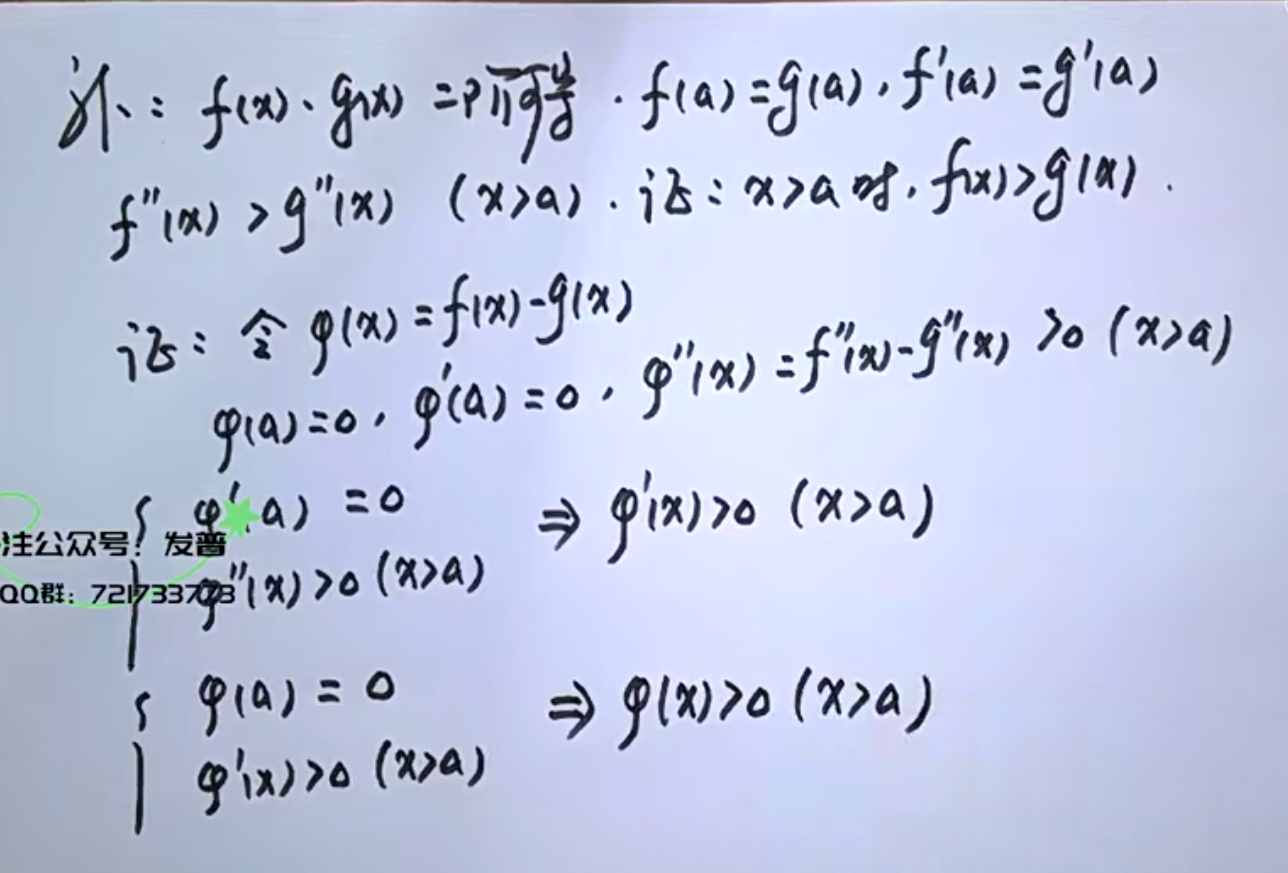 例: f(x)、g(x) 二阶可导. f(a)=g(a), f'(a)=g'(a)
f''(x)>g''(x) (x>a). 证: x>a时, f(x)>g(x).
证: 令φ(x)=f(x)-g(x)
φ(a)=0, φ'(a)=0, φ''(x)=f''(x)-g''(x)>0 (x>a)
{ φ'(a)=0 ⇒ φ'(x)>0 (x>a)
注公众号: 发普
φ''(x)>0 (x>a)
QQ群: 721733773
{ φ(a)=0 ⇒ φ(x)>0 (x>a)
φ'(x)>0 (x>a)